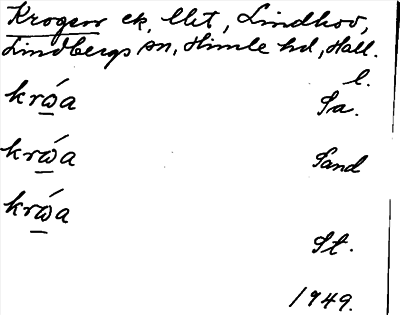 Krogsor ek. llet, Lindhov,
Lindbergs sn, Himle hd, Hall.
l.
krώa Sa.
krώa Sand
krώa
St.
1949.